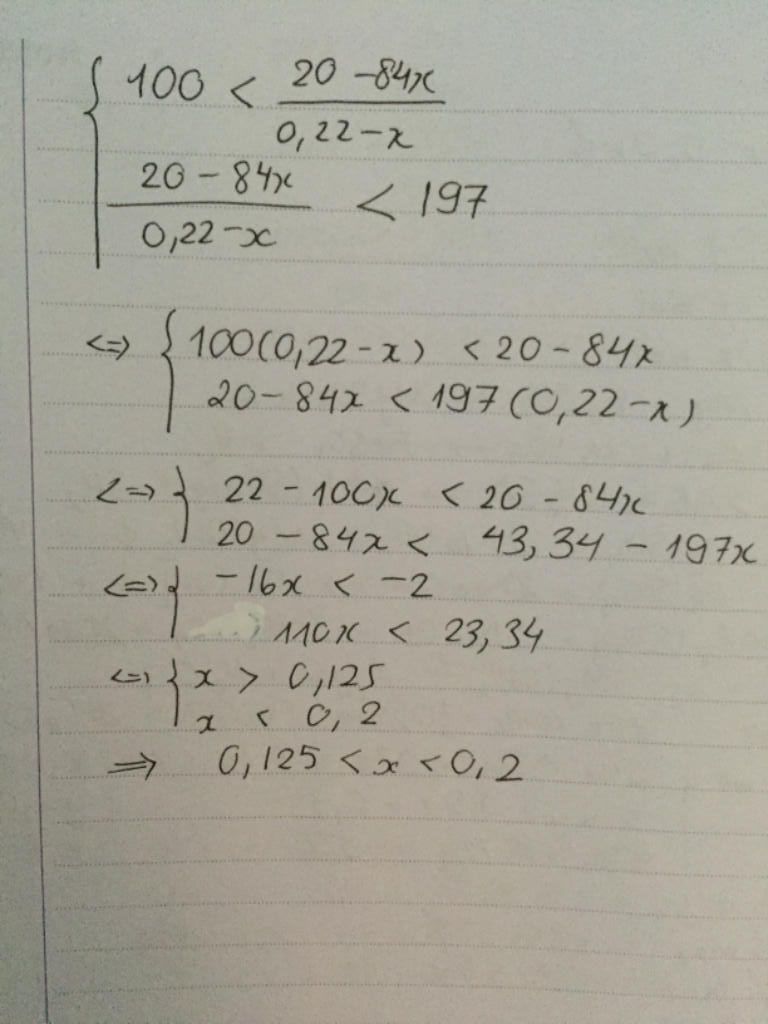 { 100 < (20 - 84x)/(0,22 - x)
(20 - 84x)/(0,22 - x) < 197
<=> { 100(0,22 - x) < 20 - 84x
20 - 84x < 197(0,22 - x)
<=> { 22 - 100x < 20 - 84x
20 - 84x < 43,34 - 197x
<=> { -16x < -2
110x < 23,34
<=> { x > 0,125
x < 0,2
=> 0,125 < x < 0,2